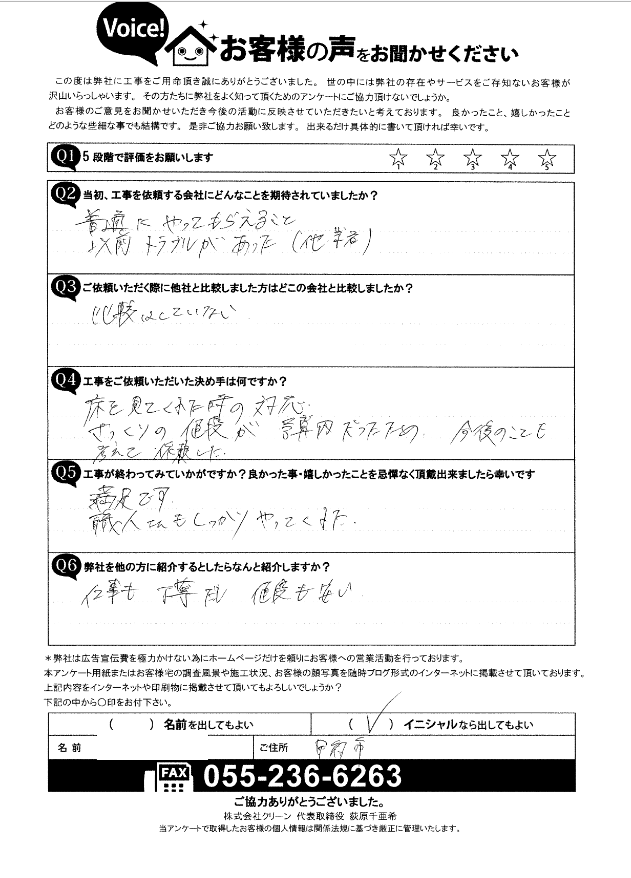 Voice!
お客様の声をお聞かせください
この度は弊社に工事をご用命頂き誠にありがとうございました。 世の中には弊社の存在やサービスをご存知ないお客様が
沢山いらっしゃいます。 その方たちに弊社をよく知って頂くためのアンケートにご協力頂けないでしょうか。
お客様のご意見をお聞かせいただき今後の活動に反映させていただきたいと考えております。 良かったこと、嬉しかったこと
どのような些細な事でも結構です。 是非ご協力お願い致します。 出来るだけ具体的に書いて頂ければ幸いです。
Q1 5段階で評価をお願いします
1 2 3 4 5
Q2 当初、工事を依頼する会社にどんなことを期待されていましたか?
普通にやってもらえること
以前トラブルがあった(他業者)
Q3 ご依頼いただく際に他社と比較しました方はどこの会社と比較しましたか?
比較はしていない
Q4 工事をご依頼いただいた決め手は何ですか?
床を見てくれた時の対応
ざっくりの値段が予算内だったため 今後のことも
考えて依頼した
Q5 工事が終わってみていかがですか?良かった事・嬉しかったことを忌憚なく頂戴出来ましたら幸いです
満足です
職人さんもしっかりやってくれた
Q6 弊社を他の方に紹介するとしたらなんと紹介しますか?
仕事も丁寧だし 値段も安い
*弊社は広告宣伝費を極力かけない為にホームページだけを頼りにお客様への営業活動を行っております。
本アンケート用紙またはお客様宅の調査風景や施工状況、お客様の顔写真を随時ブログ形式のインターネットに掲載させて頂いております。
上記内容をインターネットや印刷物に掲載させて頂いてもよろしいでしょうか?
下記の中から〇印をお付下さい。
( ) 名前を出してもよい ( ✓ ) イニシャルなら出してもよい
名前 ご住所 甲府市
FAX 055-236-6263
ご協力ありがとうございました。
株式会社クリーン 代表取締役 荻原千亜希
当アンケートで取得したお客様の個人情報は関係法規に基づき厳正に管理いたします。